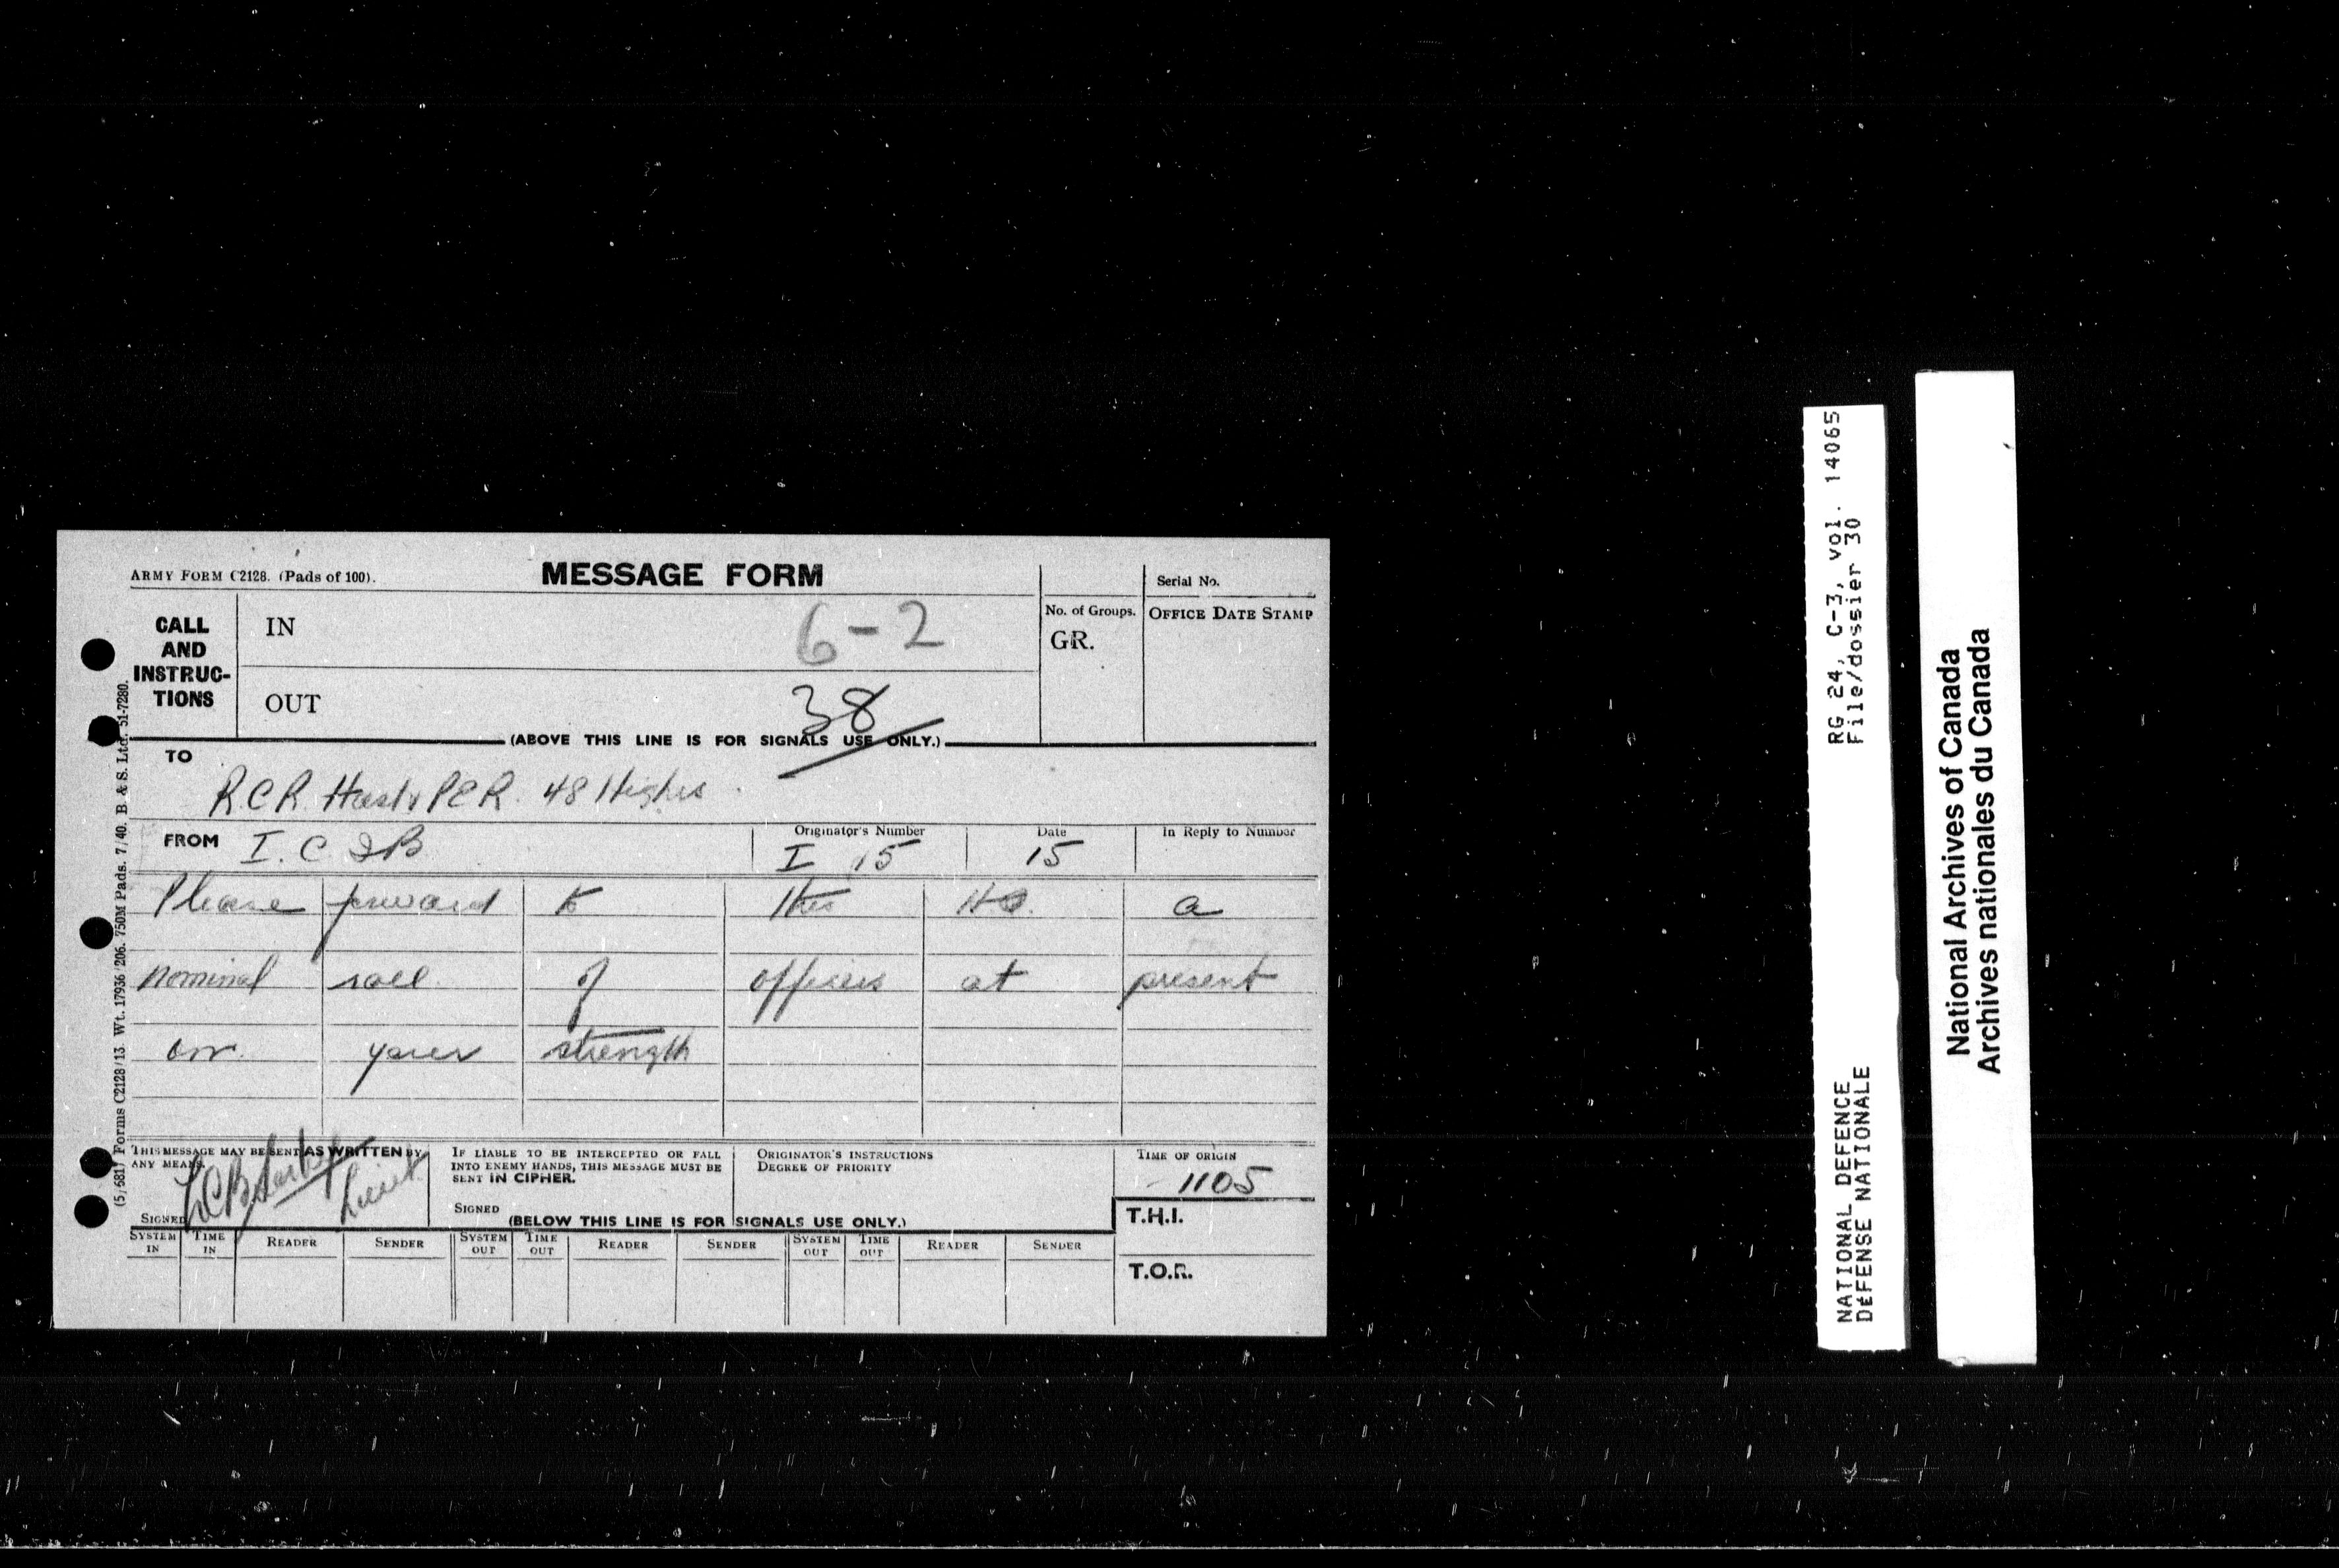 ARMY FORM C2128. (Pads of 100).
MESSAGE FORM
Serial No.
CALL AND INSTRUC-TIONS
IN
6-2
No. of Groups.
GR.
OFFICE DATE STAMP
OUT
38
(ABOVE THIS LINE IS FOR SIGNALS USE ONLY.)
TO
R.C.R. Hast & P.E.R. 48 Highrs.
FROM I. C I B
Originator's Number
I 15
Date
15
In Reply to Number
Please forward to this HQ. a
nominal roll of officers at present
on your strength
THIS MESSAGE MAY BE SENT AS WRITTEN BY
ANY MEANS.
Lieut.
SIGNED
IF LIABLE TO BE INTERCEPTED OR FALL
INTO ENEMY HANDS, THIS MESSAGE MUST BE
SENT IN CIPHER.
SIGNED
ORIGINATOR'S INSTRUCTIONS
DEGREE OF PRIORITY
TIME OF ORIGIN
1105
T.H.I.
(BELOW THIS LINE IS FOR SIGNALS USE ONLY.)
SYSTEM IN TIME IN READER SENDER SYSTEM OUT TIME OUT READER SENDER SYSTEM OUT TIME OUT READER SENDER
T.O.R.
(5/681) Forms C2128/13. Wt. 17936/206. 750M Pads. 7/40. B & S. Ltd. 51-7280.
RG 24, C-3, vol. 14065
File/dossier 30
NATIONAL DEFENCE
DÉFENSE NATIONALE
National Archives of Canada
Archives nationales du Canada